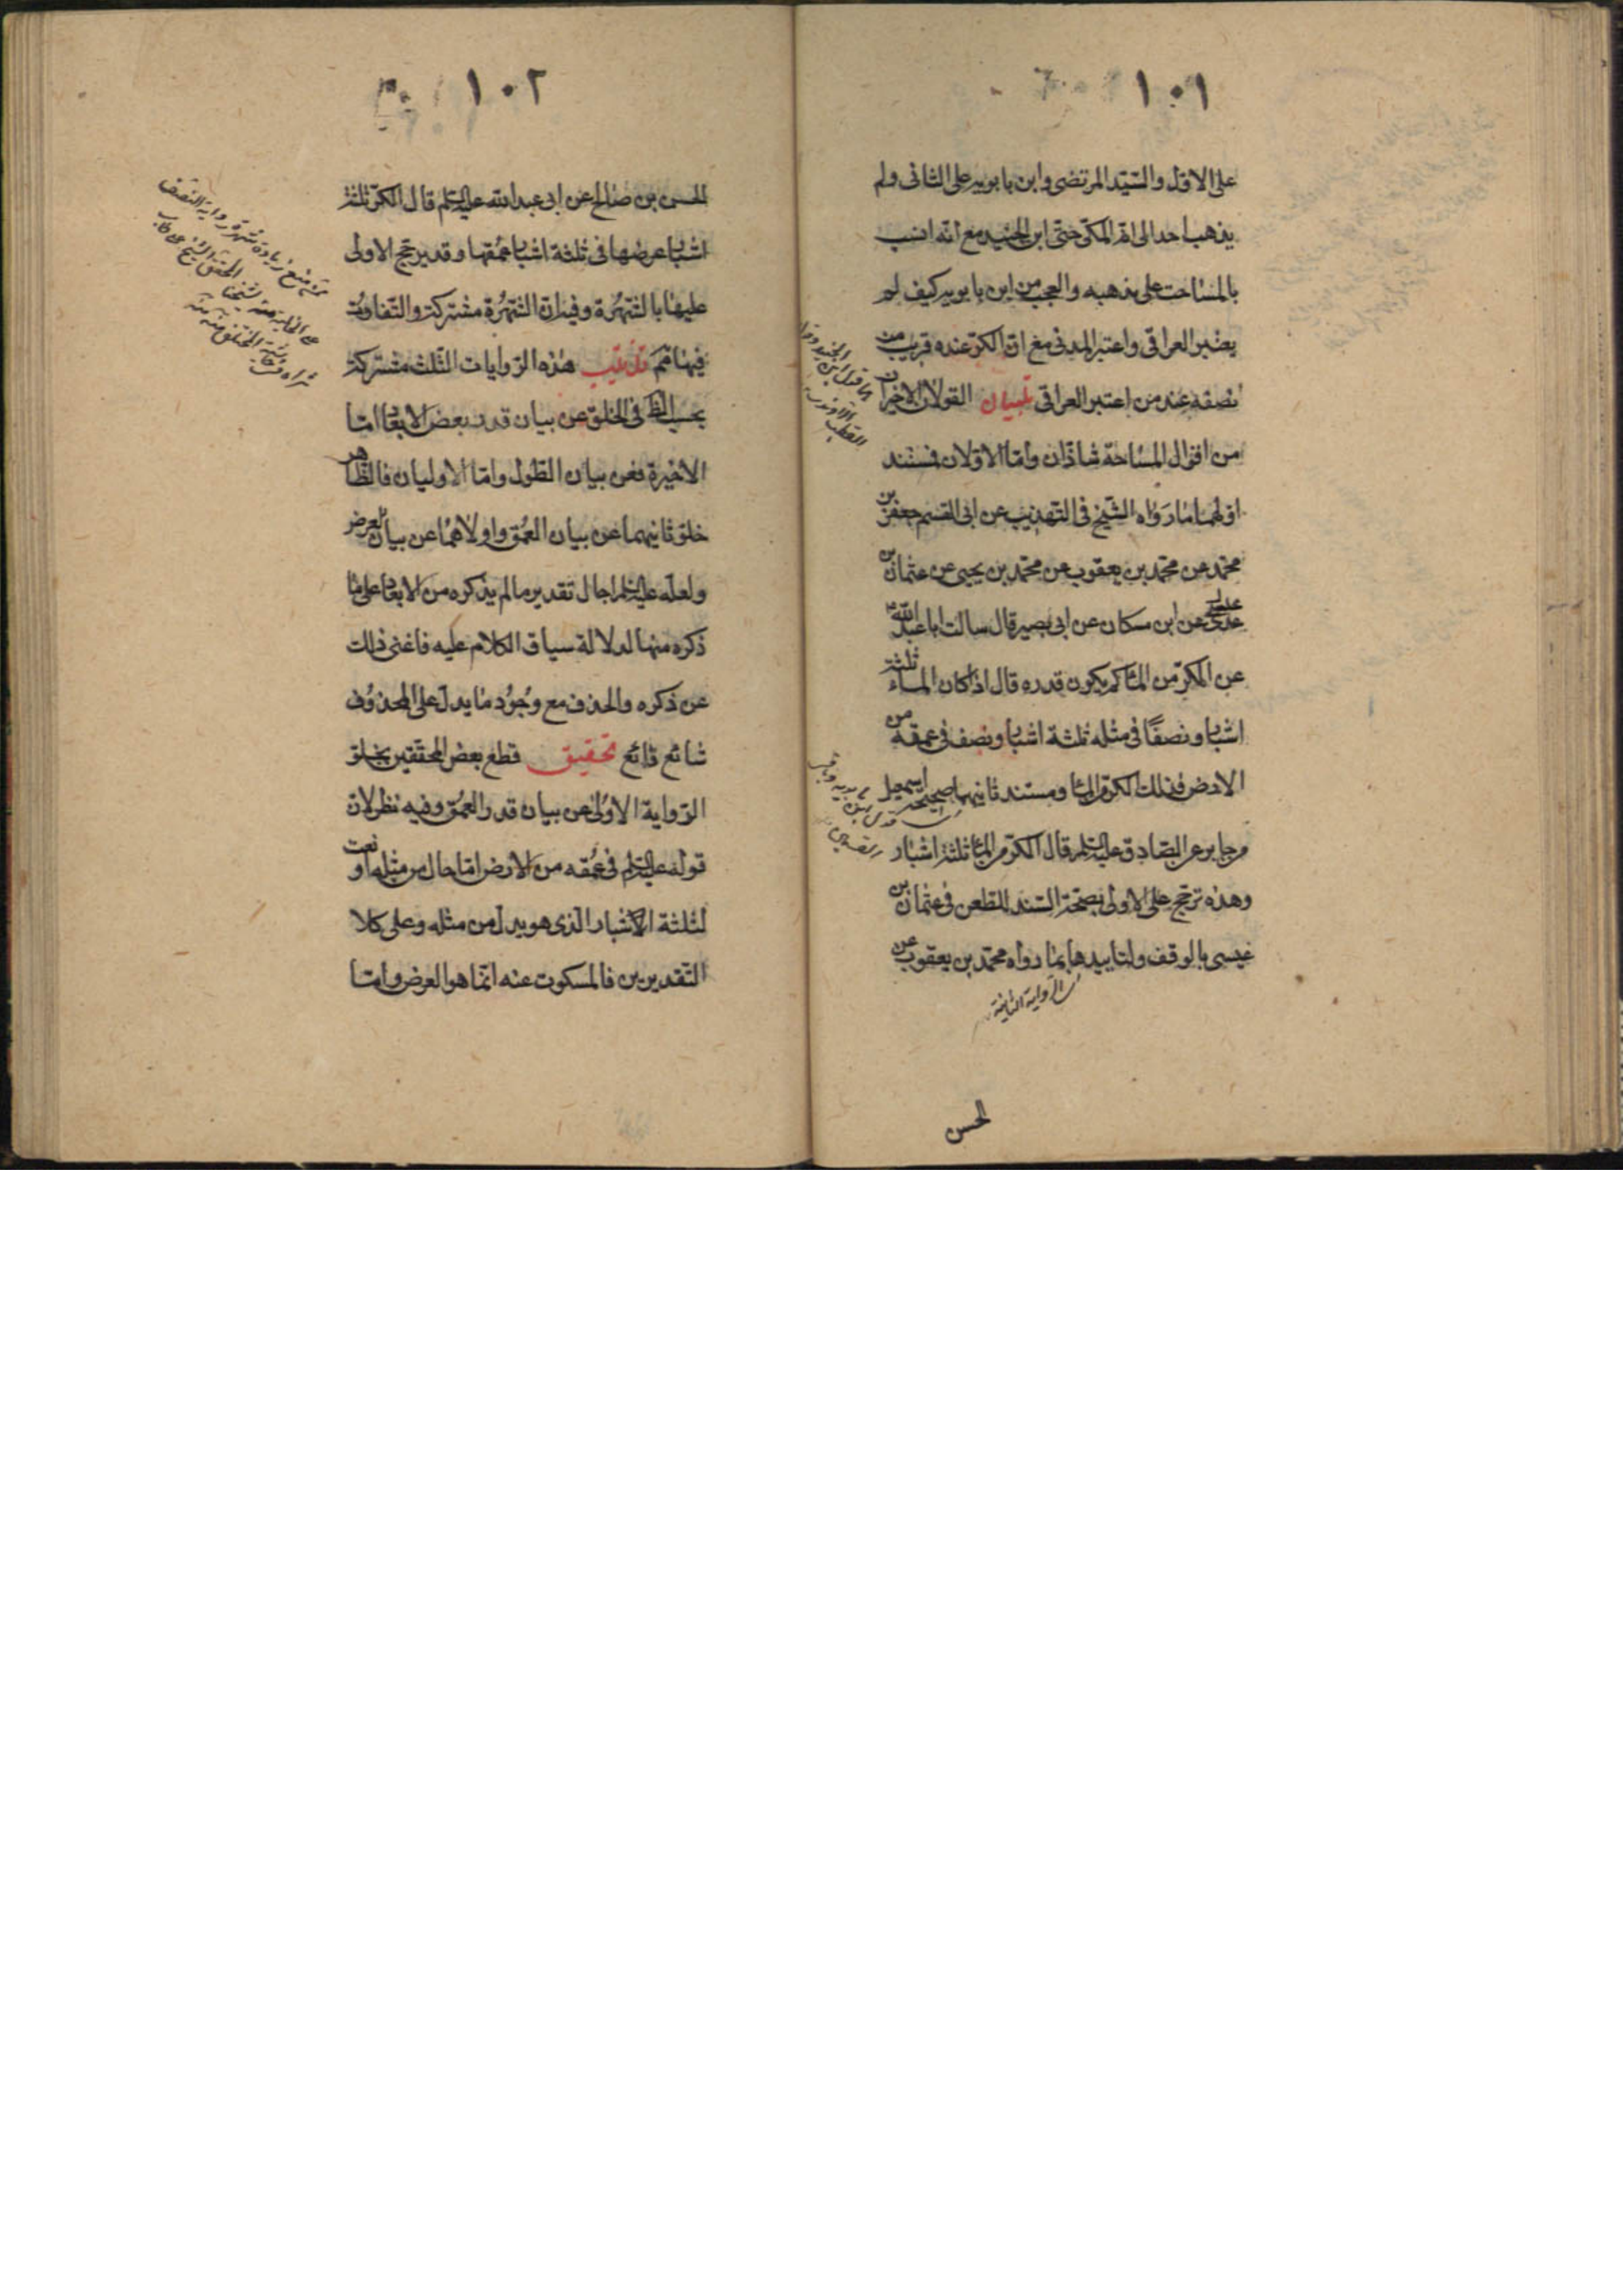 ١٠١
على الاول والسيد المرتضى وابن بابويه على الثانى ولم
يذهب احد الى انه المكى حتى ابن الجنيد مع انه انسب
بالمساحة على مذهبه والعجب من ابن بابويه كيف لم
يعتبر العراقى واعتبر المدنى مع ان الكر عنده قريب من
نصفه عند من اعتبر العراقى تبيان القولان الاخيران
من اقوال المساحة شاذان واما الاولان فمستند
اولهما ما رواه الشيخ فى التهذيب عن ابى القسم جعفر بن
محمد عن محمد بن يعقوب عن محمد بن يحيى عن عثمان بن
عيسى عن ابن مسكان عن ابى بصير قال سالت ابا عبد الله ع
عن الكر من الماء كم يكون قدره قال اذا كان الماء ثلثة
اشبار ونصفا فى مثله ثلثة اشبار ونصف فى عمقه من
الارض فذلك الكر من الماء ومستند ثانيهما صحيحة اسمعيل
بن جابر عن الصادق عليه السلم قال الكر من الماء ثلثة اشبار
وهذه ترجح على الاولى بصحة السند للطعن فى عثمان بن
عيسى بالوقف ولتاييدها بما رواه محمد بن يعقوب عن
الرواية الثانية
الحسن
١٠٢
الحسن بن صالح عن ابى عبد الله عليه السلم قال الكر ثلثة
اشبار عرضها فى ثلثة اشبار عمقها وقد يرجح الاولى
عليها بالشهرة وفيه ان الشهرة مشتركة والتفاوت
فيها تذنيب هذه الروايات الثلث مشتركة
بحسب الظ فى الخلو عن بيان قدر بعض الابعاد اما
الاخيرة فعن بيان الطول واما الاوليان فالظاهر
خلو ثانيهما عن بيان العمق واولاهما عن بيان العرض
ولعله عليه السلم احال تقدير ما لم يذكره من الابعاد على ما
ذكره منها لدلالة سياق الكلام عليه فاغنى ذلك
عن ذكره والحذف مع وجود ما يدل على المحذوف
شائع ذائع تحقيق قطع بعض المحققين بخلو
الرواية الاولى عن بيان قدر العمق وفيه نظر لان
قوله عليه السلم فى عمقه من الارض اما حال من مثله او نعت
لثلثة الاشبار الذى هو بدل من مثله وعلى كلا
التقديرين فالمسكوت عنه انما هو العرض واما